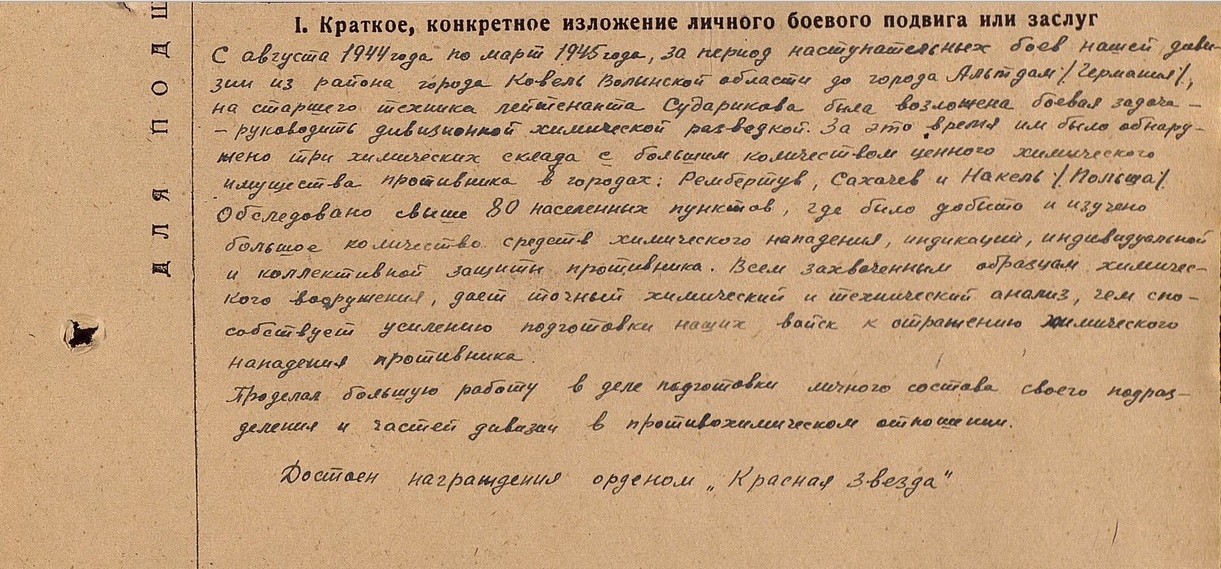 I. Краткое, конкретное изложение личного боевого подвига или заслуг
С августа 1944 года по март 1945 года, за период наступательных боев нашей диви-
зии из района города Ковель Волынской области до города Альтдам /Германия/,
на старшего техника лейтенанта Сударикова была возложена боевая задача –
– руководить дивизионной химической разведкой. За это время им было обнару-
жено три химических склада с большим количеством ценного химического
имущества противника в городах: Рембертув, Сахачев и Накель /Польша/.
Обследовано свыше 80 населенных пунктов, где было добыто и изучено
большое количество средств химического нападения, индикации, индивидуальной
и коллективной защиты противника. Всем захваченным образцам химичес-
кого вооружения, дает точный химический и технический анализ, чем спо-
собствует усилению подготовки наших войск к отражению химического
нападения противника.
Проделал большую работу в деле подготовки личного состава своего подраз-
деления и частей дивизии в противохимическом отношении.
Достоен награждения орденом „Красная Звезда"
ДЛЯ ПОДШ